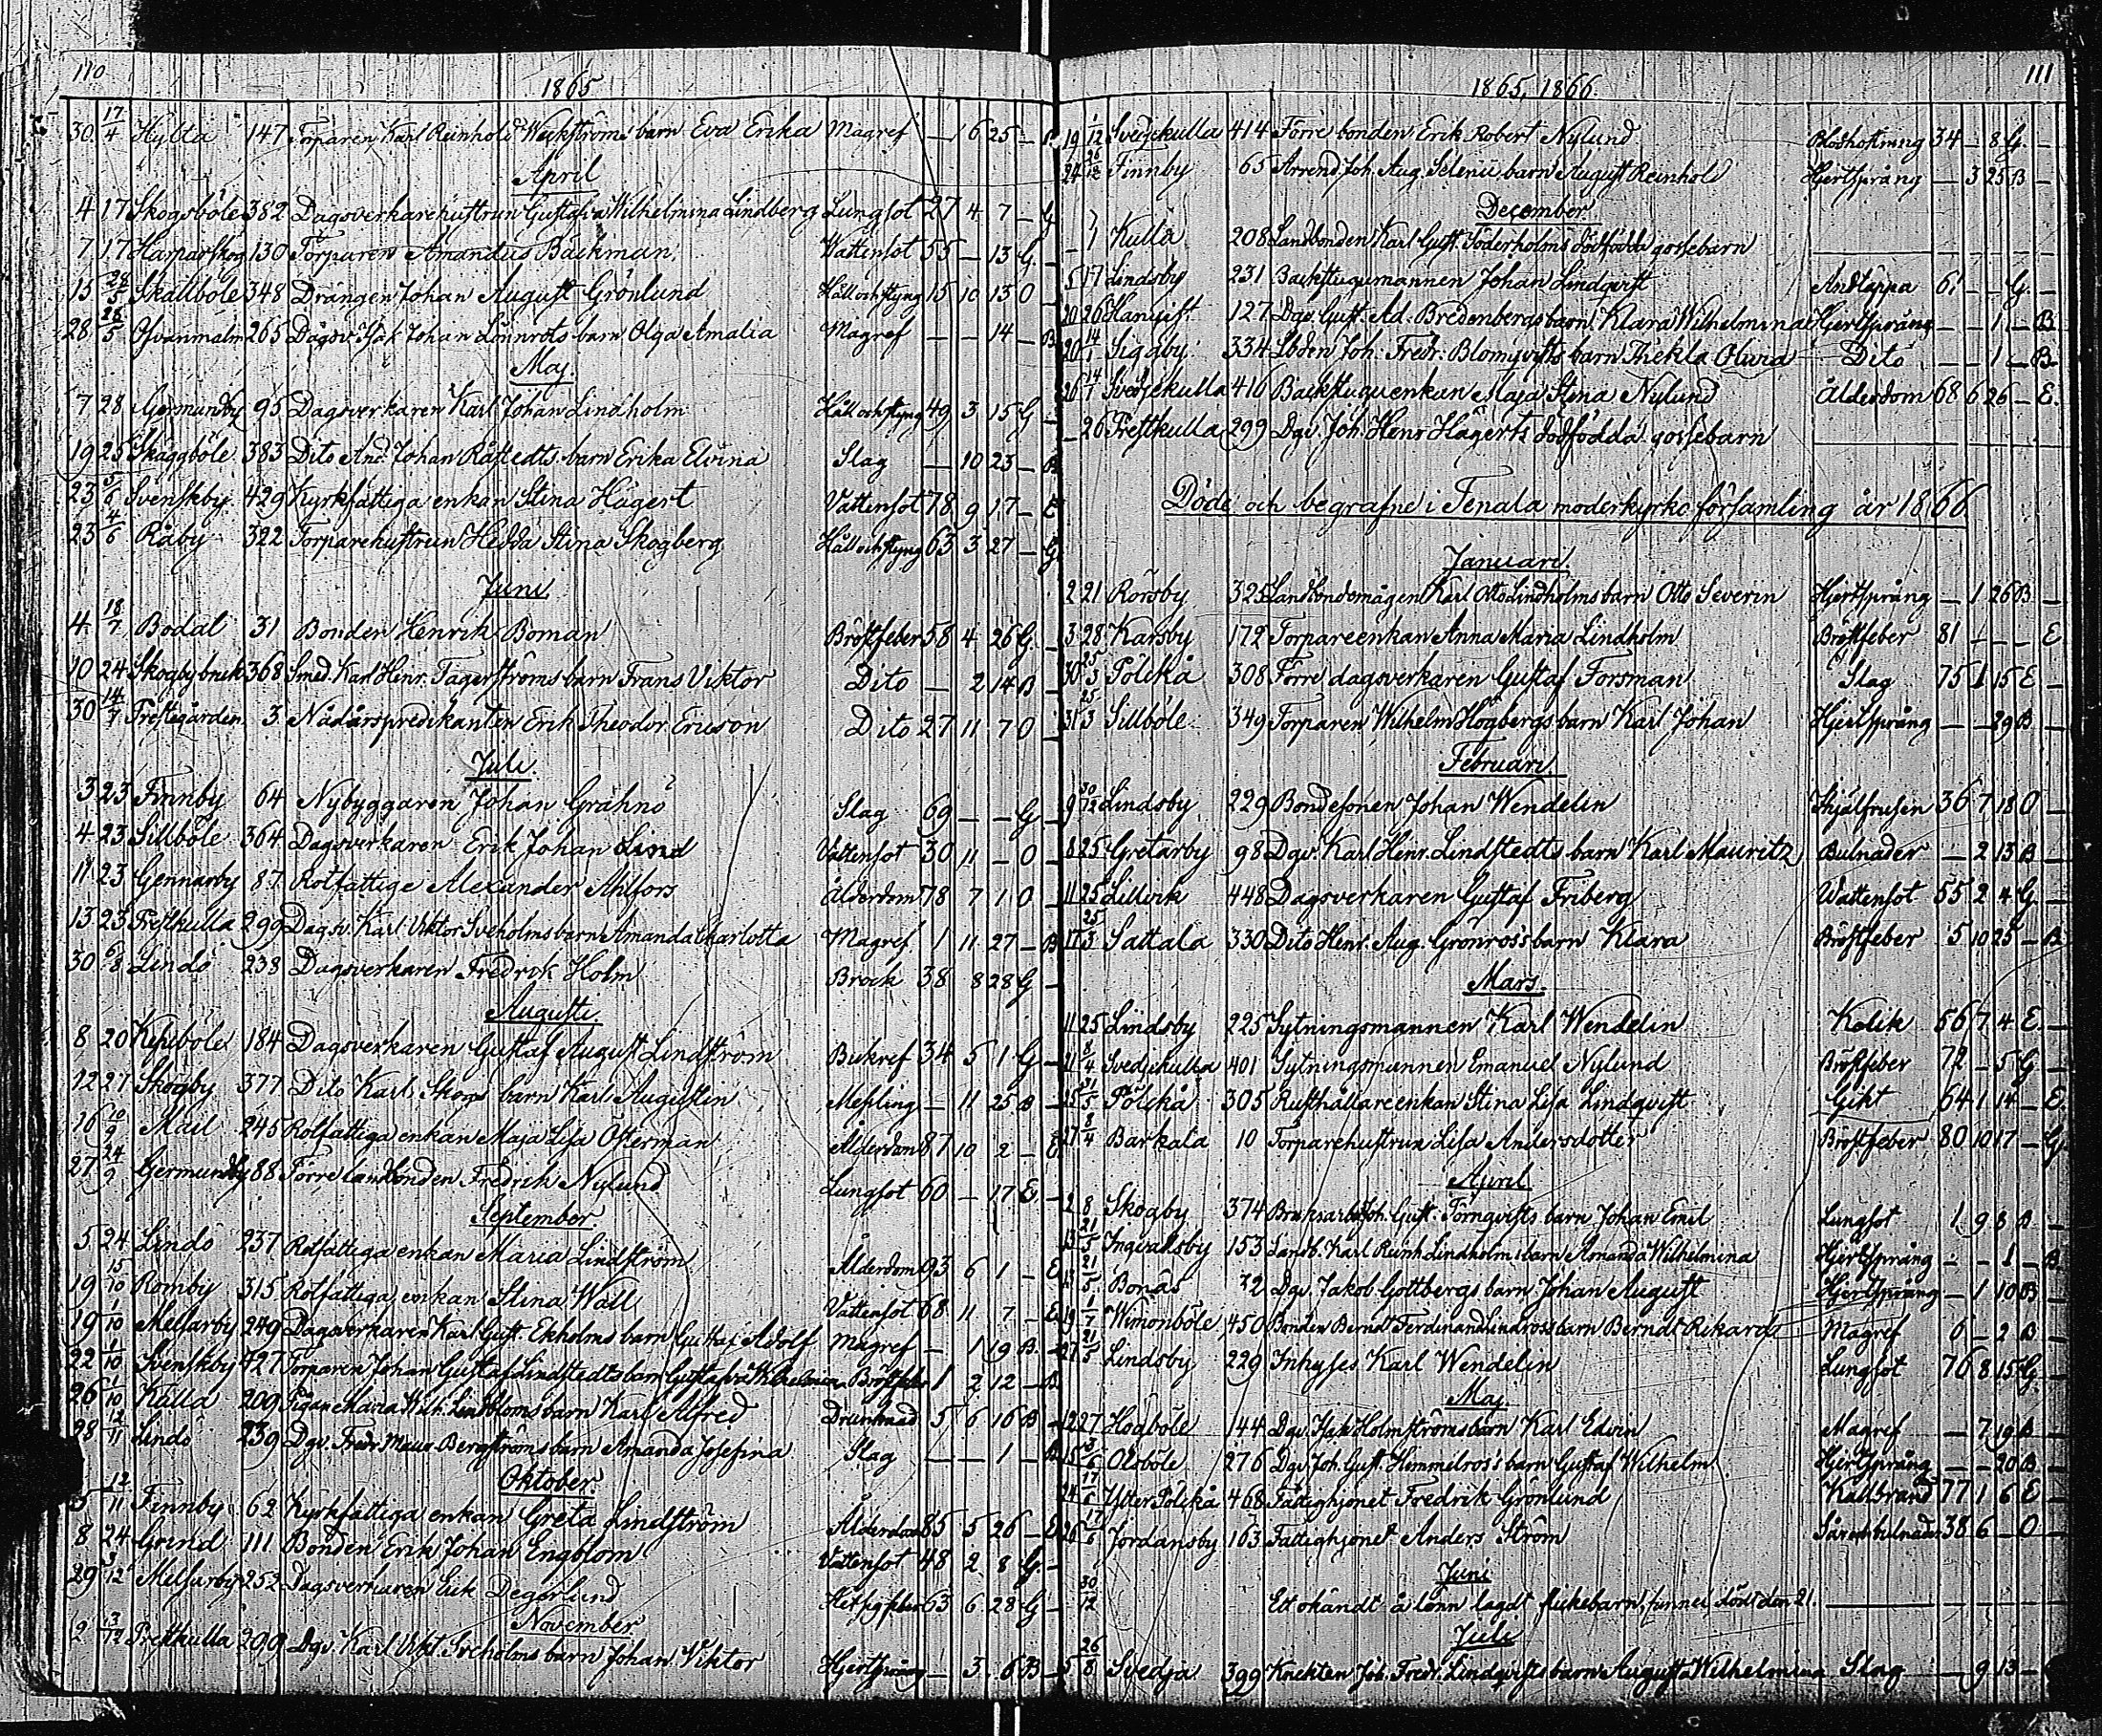 110
1865
30 17/4 Hylta 147 Torparen Karl Reinhold Weckströms barn Eva Erika Magref — 6 25 —
April
4 17 Skogsböle 382 Dagsverkarehustrun Gustafva Wilhelmina Lindberg Lungsot 27 4 7 — G
7 17 Harparskog 130 Torparen Amandus Backman Wattensot 55 — 13 G. —
15 28/5 Skållböle 348 Drängen Johan August Grönlund Håll och styng 15 10 13 O
28 28/5 Ofvanmalm 265 Dagsv. Isak Johan Lönnrots barn Olga Amalia Magref — — 14 — B
Maj.
7 28 Germundby 95 Dagsverkaren Karl Johan Lindholm Håll och styng 49 3 15 G
19 25 Skåggböle 383 Dito And. Johan Råstedts barn Erika Elvina Slag — 10 23 — B
23 5/6 Svenskby 429 Kyrkfattiga enkan Stina Hägert Vattensot 78 9 17 — E
23 4/6 Råby 322 Torparehustrun Hedda Stina Skogberg Håll och styng 63 3 27 — G
Juni
4 18/7 Bodal 31 Bonden Henrik Boman Bröstfeber 58 4 26 G. —
10 24 Skogby bruk 368 Smed. Karl Henr. Fagerströms barn Frans Viktor Dito — 2 14 B —
30 14/7 Prestegården 3 Nådårspredikanten Erik Theodor Ericson Dito 27 11 7 O —
Juli.
3 23 Finnby 64 Nybyggaren Johan Grahnö Slag 69 — — G —
4 23 Sillböle 364 Dagsverkaren Erik Johan Lind Vattensot 30 11 — O —
11 23 Gennarby 87 Rotfattige Alexander Ahlfors Ålderdom 78 7 1 O —
13 23 Prestkulla 299 Dagsv. Karl Viktor Sveholms barn Amanda Charlotta Magref 1 11 27 — B
30 6/8 Lindö 238 Dagsverkaren Fredrik Holm Brock 38 8 28 G —
Augusti.
8 20 Kesuböle 184 Dagsverkaren Gustaf August Lindström Bukref 34 5 1 G —
12 27 Skogby 377 Dito Karl Skogs barn Karl Augustin Messling — 11 25 B —
16 10/9 Mail 245 Rotfattiga enkan Maja Lisa Österman Ålderdom 87 10 2 — E
27 24/9 Germundby 88 Förre landbonden Fredrik Nylund Lungsot 60 — 17 E. —
September.
5 24 Lindö 237 Rotfattiga enkan Maria Lindström Ålderdom 93 6 1 — E
19 15/10 Romby 315 Rotfattiga enkan Stina Wall Vattensot 68 11 7 — E
19 1/10 Melsarby 249 Dagsverkaren Karl Gust. Ekholms barn Gustaf Adolf Magref — 1 19 B. —
22 1/10 Svenskby 427 Torparen Johan Gustaf Lindstedts barn Gustafva Wilhelmina Bröstfeber 1 2 12 — B
26 1/10 Kålla 209 Pigan Maria Wilh. Lindbloms barn Karl Alfred Drunknad 5 6 16 B —
28 12/11 Lindö 239 Dgv. Fredr. Maur. Bergströms barn Amanda Josefina Slag — — 1 — B
Oktober.
5 12/11 Finnby 62 Kyrkfattiga enkan Greta Lindström Ålderdom 85 5 26 — E
8 24 Grind 111 Bonden Erik Johan Engblom Vattensot 48 2 8 G. —
29 3/12 Melsarby 252 Dagsverkaren Erik Degerlund Hetsig feber 63 6 28 G —
November
2 3/12 Prestkulla 299 Dgv. Karl Vikt. Sveholms barn Johan Viktor Hjertsprång — 3 6 B —
111
1865, 1866.
19 1/12 Svedjekulla 414 Förre bonden Erik Robert Nylund Blodhostning 34 — 8 G. —
24 26/12 Finnby 65 Arrend. Joh. Aug. Selenii barn August Reinhold Hjertsprång — 3 25 B —
December.
— 1 Kulla 208 Landbonden Karl Gust. Söderholms dödfödda gossebarn
5 17 Lindsby 231 Backstugumannen Johan Lindqvist Andtäppa 61 — — G. —
20 26 Hanguist 127 Dgv. Gust. Ad. Bredenbergs barn Klara Wilhelmina Hjertsprång — — 1 — B
20 14/1 Siggby 334 Lbden Joh. Fredr. Blomqvists barn Thekla Olivia Dito — — 1 — B.
26 14/1 Svedjekulla 416 Backstuguenkan Maja Stina Nylund Ålderdom 68 6 26 — E.
— 26 Prestkulla 299 Dgv. Joh. Henr. Hägerts dödfödda gossebarn
Döde och begrafne i Tenala moderkyrkoförsamling år 1866
Januari.
2 21 Rörsby 325 Landbondemågen Karl Otto Lindholms barn Otto Severin Hjertsprång — 1 26 B —
3 28 Karsby 172 Torpareenkan Anna Maria Lindholm Bröstfeber 81 — — — E
30 25/3 Pölskå 308 Förre dagsverkaren Gustaf Forsman Slag 75 1 15 E —
31 25/3 Sillböle 349 Torparen Wilhelm Högbergs barn Karl Johan Hjertsprång — — 29 B —
Februari.
9 30/12 Lindsby 229 Bondesonen Johan Wendelin Ihjälfrusen 36 7 18 O —
8 25 Gretarby 98 Dgv. Karl Henr. Lindstedts barn Karl Mauritz Bulnader — 2 13 B —
11 25 Lillvik 448 Dagsverkaren Gustaf Friberg Wattensot 55 2 4 G. —
17 25/3 Sattala 330 Dito Henr. Aug. Grönroos barn Klara Bröstfeber 5 10 25 — B
Mars.
11 25 Lindsby 225 Sytningsmannen Karl Wendelin Kolik 56 7 4 E. —
21 8/4 Svedjekulla 401 Sytningsmannen Emanuel Nylund Bröstfeber 72 — 5 G —
25 31/5 Pölskå 305 Rusthållareenkan Stina Lisa Lindqvist Gikt 64 1 14 — E.
27 8/4 Barkala 10 Torparehustrun Lisa Andersdotter Bröstfeber 80 10 17 — G
April
2 8 Skogby 374 Bruksarb. Joh. Gust. Törnqvists barn Johan Emil Lungsot 1 9 8 B —
13 21/5 Ingvaldsby 153 Landb. Karl Reinh. Lindholms barn Amanda Wilhelmina Hjertsprång — — 1 — B
21/5 Bonäs 32 Dgv. Jakob Gottbergs barn Johan August Hjertsprång — 1 10 B —
19 1/7 Wimonböle 450 Bonden Berndt Ferdinand Lindroos barn Berndt Rikard Magref 6 — 2 B —
27 21/5 Lindsby 229 Inhyses Karl Wendelin Lungsot 76 8 15 G. —
Maj.
12 27 Högböle 144 Dgv. Isak Holmströms barn Karl Edvin Magref — 7 19 B —
15 3/6 Olsböle 276 Dgv. Joh. Gust. Himmelroos barn Gustaf Wilhelm Hjertsprång — — 20 B —
24 17/6 Ytter Pölskå 468 Fattighjonet Fredrik Grönlund Kallbrand 77 1 6 E —
26 17/6 Jordansby 163 Fattighjonet Anders Ström Sår och bulnader 38 6 — O —
Juni
30/12 Ett okändt å lönn lagdt flickebarn, funnet dödt den 21.
Juli
5 26/8 Svedja 399 Knekten Joh. Fredr. Lindqvists barn Augusta Wilhelmina Slag — 9 13 —